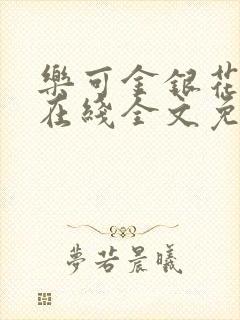 樂可金銀花
在綫全文免
夢若晨曦